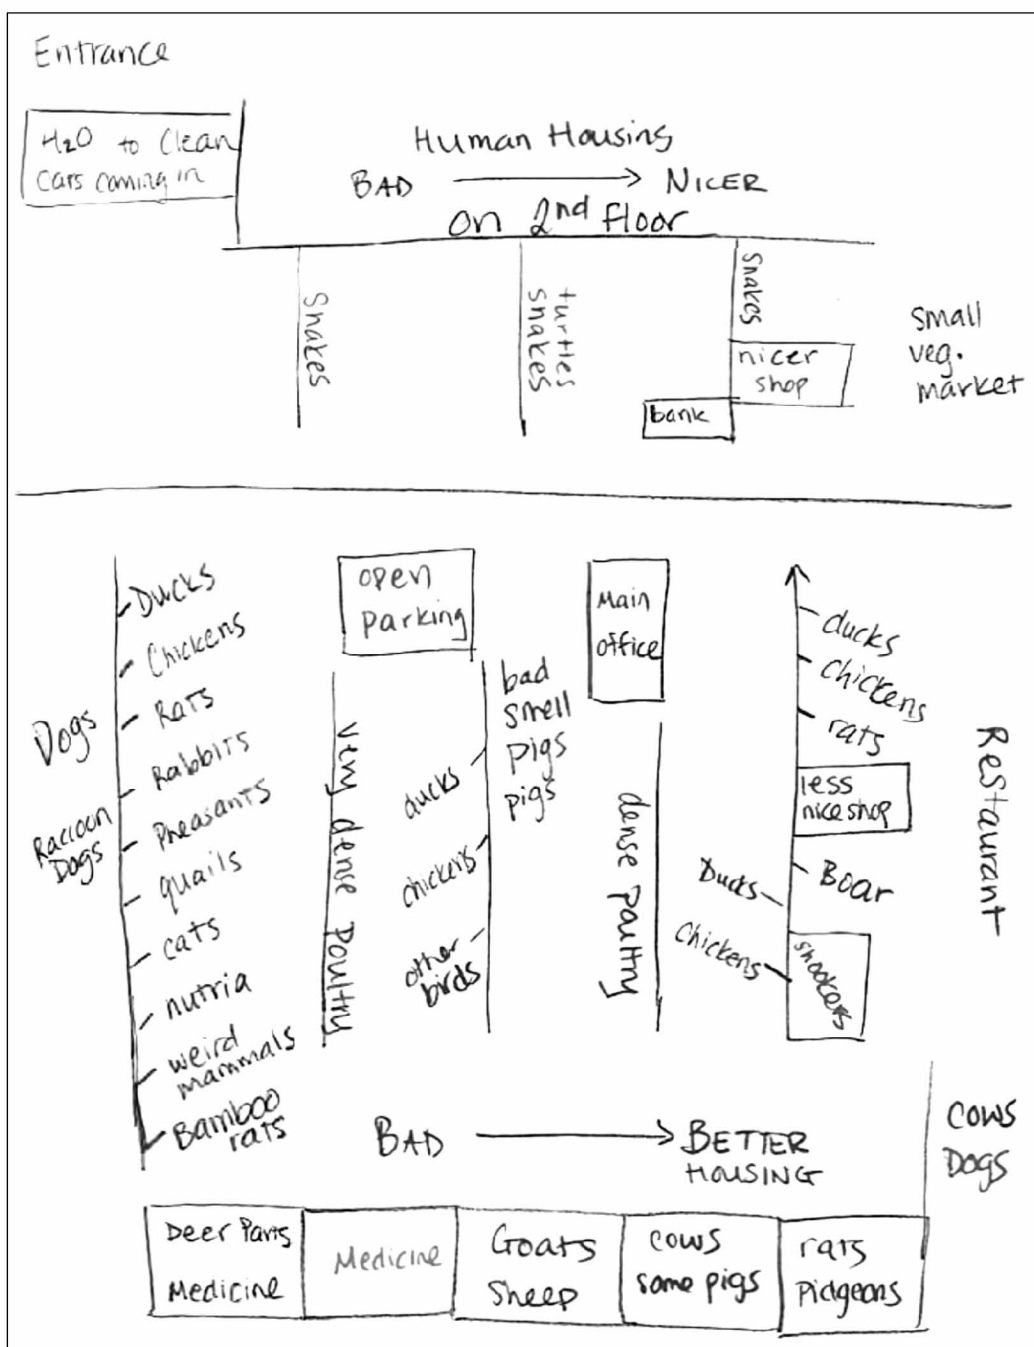 Entrance
H₂O to Clean
Cars coming in
Human Housing
BAD → NICER
on 2nd Floor
Snakes
turtles
snakes
Snakes
nicer
shop
bank
Small
veg.
market
Ducks
Chickens
Rats
Rabbits
Pheasants
quails
cats
nutria
weird
mammals
Bamboo
rats
Dogs
Raccoon
Dogs
open
Parking
Very dense Poultry
ducks
chickens
other
birds
bad
smell
pigs
pigs
Main
office
dense Poultry
ducks
chickens
rats
less
nice shop
Boar
Ducks
Chickens
Restaurant
BAD → BETTER
HOUSING
COWS
DOGS
Deer Parts
Medicine
Medicine
Goats
Sheep
cows
some pigs
rats
Pidgeons